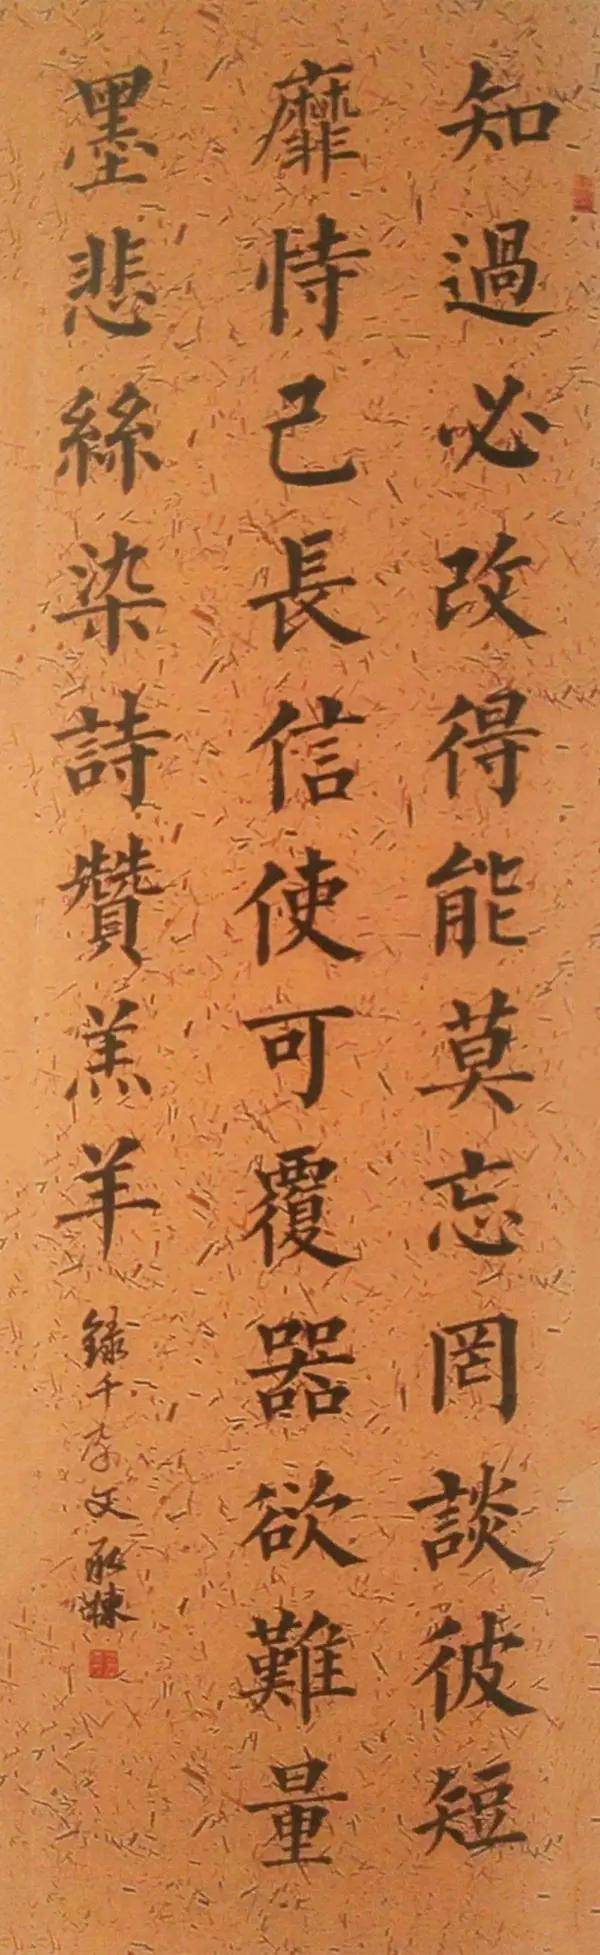 知過必改得能莫忘罔談彼短
靡恃己長信使可覆器欲難量
墨悲絲染詩贊羔羊
錄千字文